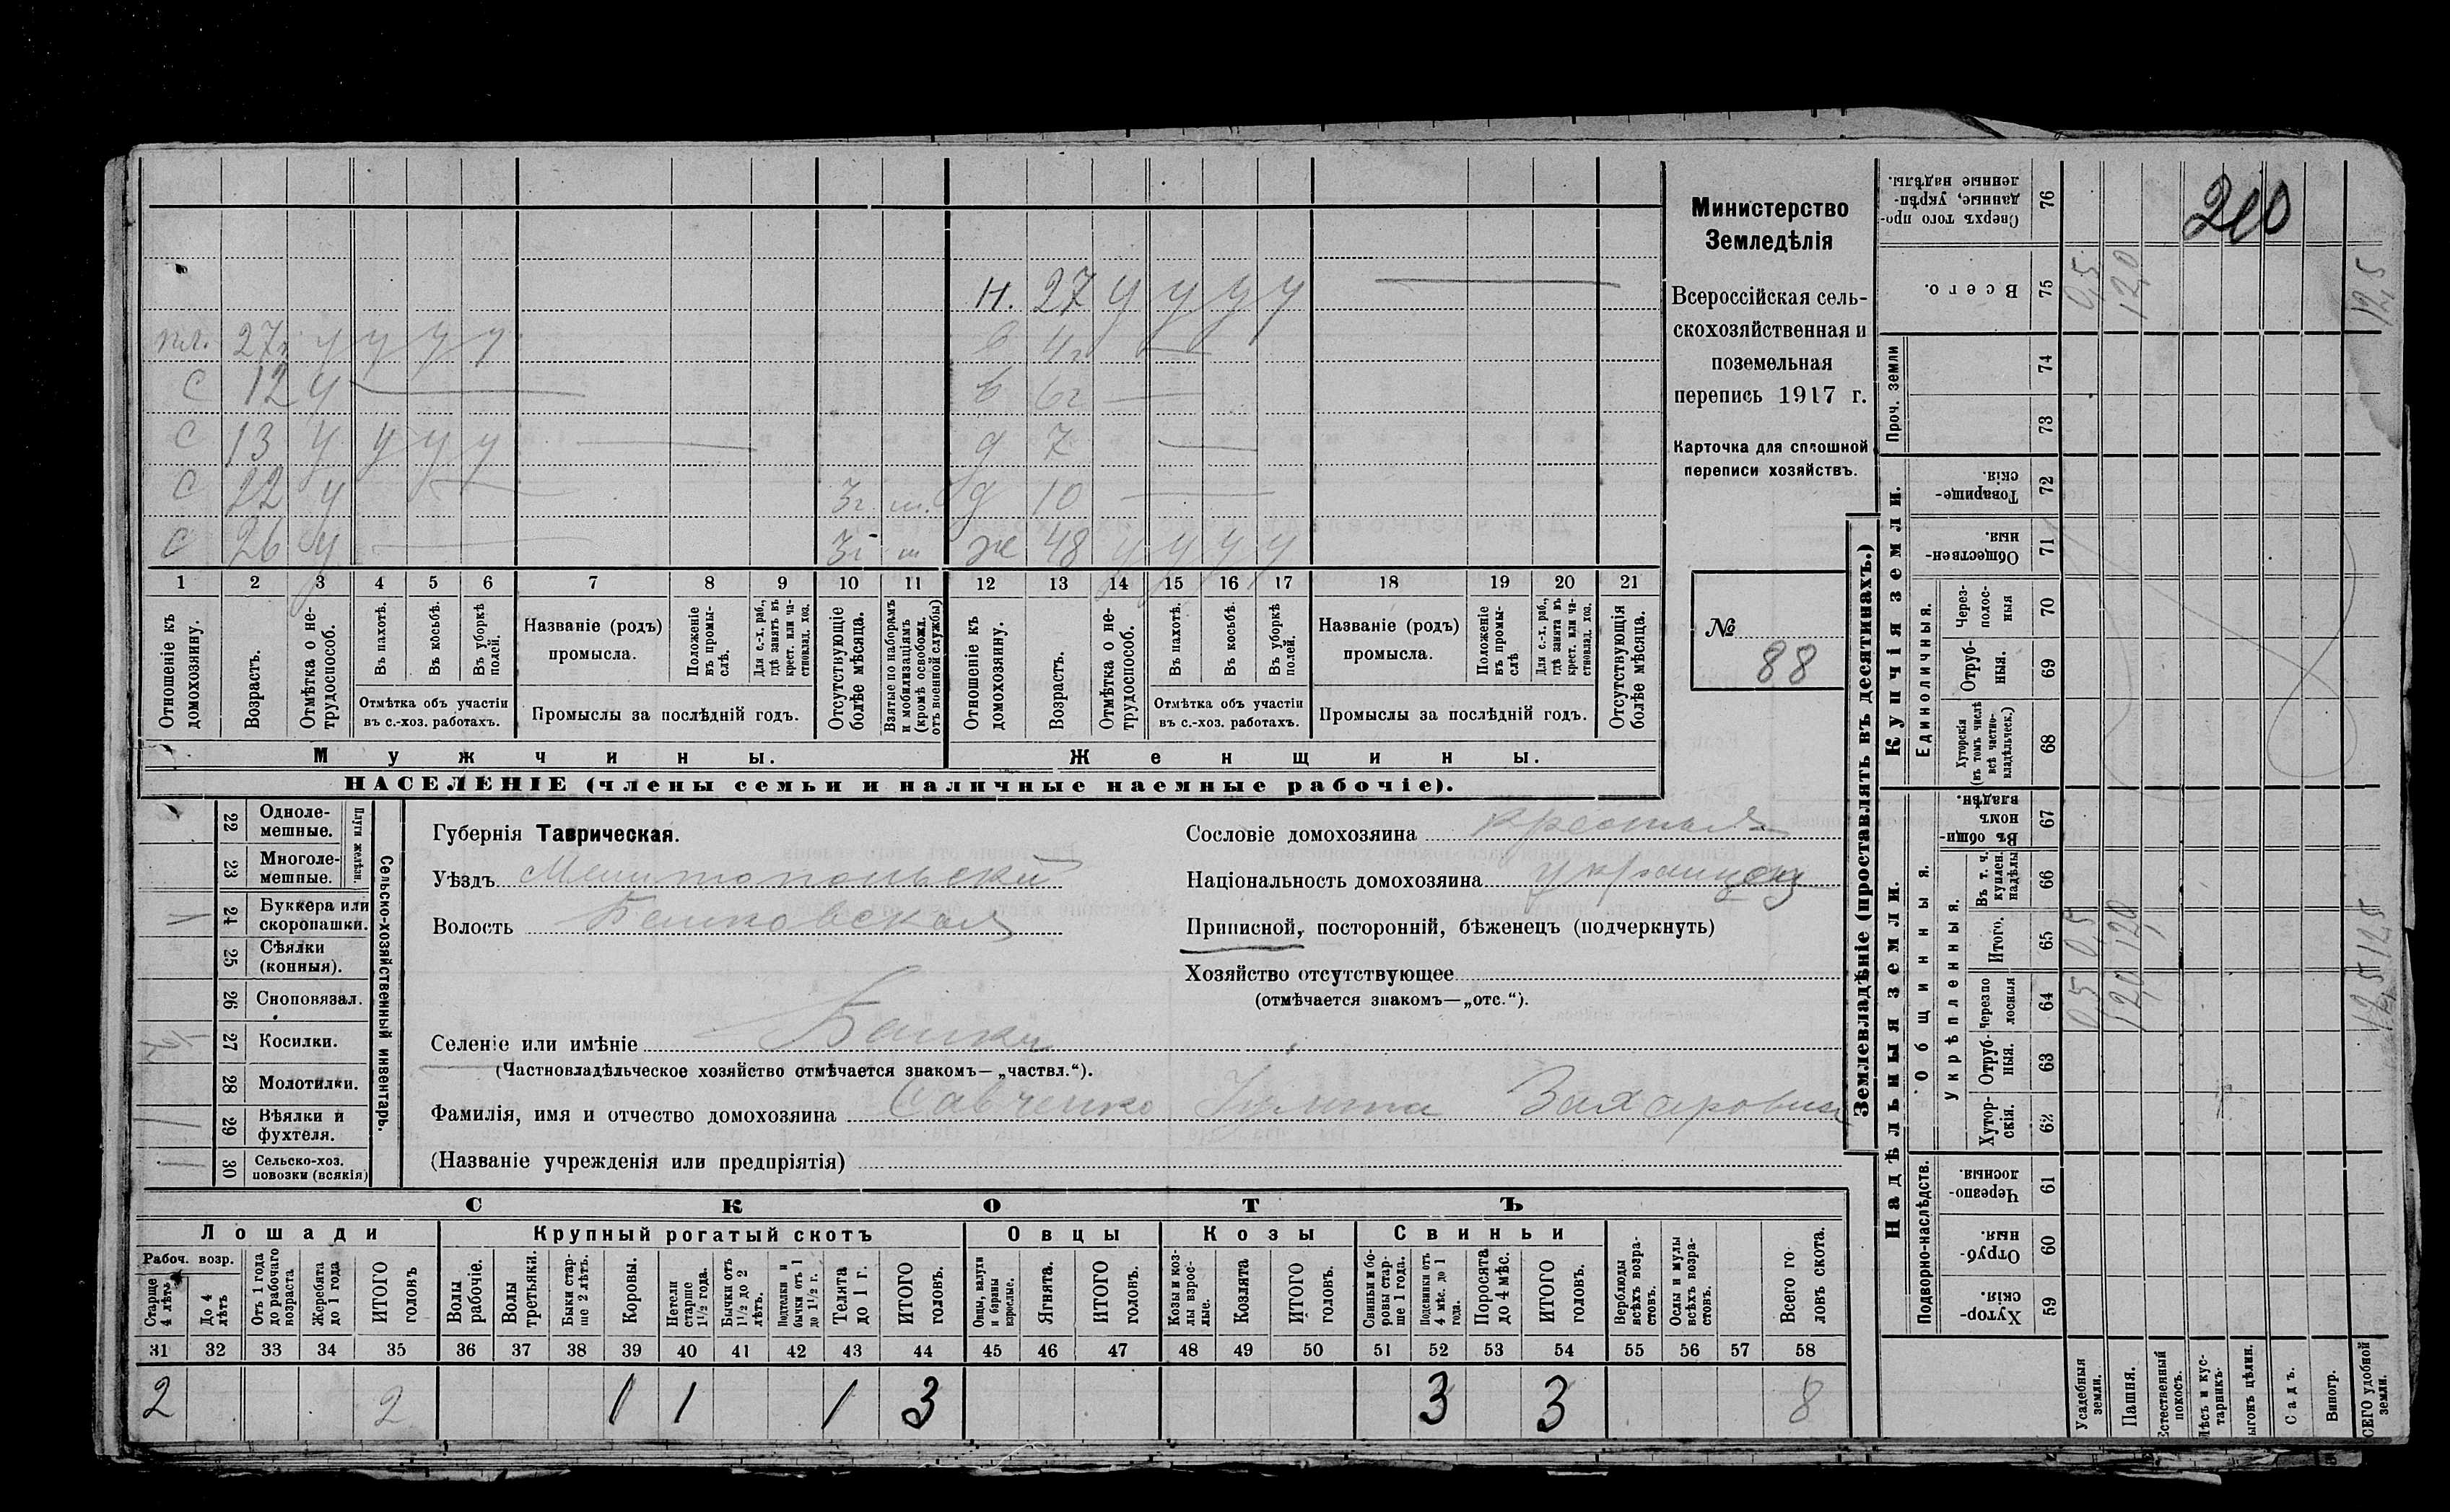 н. 27 у у у у
пл. 27 у у у у
в 4г
с 12 у
в 6г
с 13 у у у у
д 7
с 22 у 3г. ш.
д 10
с 26 у 3г ш
ж 48 у у у у
1 2 3 4 5 6 7 8 9 10 11 12 13 14 15 16 17 18 19 20 21
Отношеніе къ домохозяину.
Возрастъ.
Отмѣтка о не-
трудоспособ.
Въ пахотѣ.
Въ косьбѣ.
Въ уборкѣ полей.
Отмѣтка объ участіи
въ с.-хоз. работахъ.
Названіе (родъ)
промысла.
Положеніе въ промы-
слѣ.
Для с.-х. раб., гдѣ занятъ въ крест. или ча-
стновлад. хоз.
Промыслы за послѣдній годъ.
Отсутствующіе болѣе мѣсяца.
Взятые по наборамъ и мобилизаціямъ (кромѣ освобожд. отъ военной службы)
Отношеніе къ домохозяину.
Возрастъ.
Отмѣтка о не-
трудоспособ.
Въ пахотѣ.
Въ косьбѣ.
Въ уборкѣ полей.
Отмѣтка объ участіи
въ с.-хоз. работахъ.
Названіе (родъ)
промысла.
Положеніе въ промы-
слѣ
Для с.-х. раб., гдѣ занята въ крест. или ча-
стновлад. хоз.
Промыслы за послѣдній годъ.
Отсутствующія болѣе мѣсяца.
Мужчины.
Женщины.
НАСЕЛЕНІЕ (члены семьи и наличные наемные рабочіе).
Министерство
Земледѣлія
Всероссійская сель-
скохозяйственная и
поземельная
перепись 1917 г.
Карточка для сплошной
переписи хозяйствъ.
№
88
22 Одноле-
мешные.
23 Многоле-
мешные.
Плуги желѣзн.
24 Буккера или
скоропашки.
25 Сѣялки
(конныя).
26 Сноповязал.
27 Косилки.
28 Молотилки.
29 Вѣялки и
фухтеля.
30 Сельско-хоз.
повозки (всякія)
Сельско-хозяйственный инвентарь.
Губернія Таврическая.
Уѣздъ Мелитопольскій
Волость
Селеніе или имѣніе
(Частновладѣльческое хозяйство отмѣчается знакомъ—„частвл.“).
Фамилія, имя и отчество домохозяина Савченко Захаровичъ
(Названіе учрежденія или предпріятія)
Сословіе домохозяина
Національность домохозяина украинецъ
Приписной, посторонній, бѣженецъ (подчеркнуть)
Хозяйство отсутствующее
(отмѣчается знакомъ—„отс.“).
СКОТЪ
Лошади
Крупный рогатый скотъ
Овцы
Козы
Свиньи
Рабоч. возр.
Старше 4 лѣтъ
До 4 лѣтъ
Отъ 1 года до рабочаго возраста
Жеребята до 1 года
ИТОГО головъ
Волы рабочіе.
Волы третьяки.
Быки стар-
ше 2 лѣтъ.
Коровы.
Нетели старше 1½ года.
Бычки отъ 1½ до 2 лѣтъ.
бычки отъ 1 до 1½ г.
Телята до 1 г.
ИТОГО головъ.
Овцы, валухи и бараны взрослые.
Ягнята.
ИТОГО головъ.
Козы и коз-
лы взрос-
лые.
Козлята
ИТОГО головъ.
Свиньи и бо-
ровы стар-
ше 1 года.
Подсвинки отъ 4 мѣс. до 1 года.
Поросята до 4 мѣс.
ИТОГО головъ.
Верблюды всѣхъ возра-
стовъ.
Ослы и мулы всѣхъ возра-
стовъ.
Всего го
ловъ скота.
31 32 33 34 35 36 37 38 39 40 41 42 43 44 45 46 47 48 49 50 51 52 53 54 55 56 57 58
2 2 1 1 1 3 3 3 8
Землевладѣніе (проставлять въ десятинахъ.)
Купчія земли.
Надѣльныя земли.
Сверхъ того про-
данные, укрѣп-
ленные надѣлы.
76
210
Всего.
75
0,5
12,0
12,5
Проч. земли
74
73
Товарище-
скія.
72
Обществен-
ныя.
71
Единоличныя.
Через-
полос-
ныя
70
Отруб-
ныя.
69
Хуторскія
(въ томъ числѣ
всѣ частно-
владѣльческ.)
68
Общинныя.
Въ общин-
номъ
владѣн.
67
Укрѣпленныя.
Въ т. ч.
куплен.
надѣлы
66
Итого.
65
0,5
12,0
12,5
Черезпо
лосныя
64
0,5
12,0
12,5
Отруб-
ныя.
63
Хутор-
скія.
62
Подворно-наслѣдств.
Черезпо-
лосныя.
61
Отруб-
ныя.
60
Хутор-
скія.
59
Усадебныя земли.
Пашня.
Естественный покосъ.
Лѣсъ и кус-
тарникъ.
Выгонъ цѣлин.
Садъ.
Виногр.
ВСЕГО удобной земли.